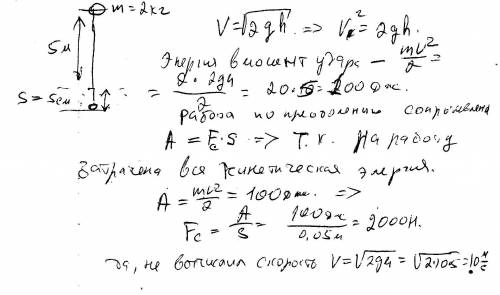 m = 2кг
5м
S = 5см
V = √2gh => V² = 2gh.
Энергия в момент удара – mv²/2 =
= 2 · 2gh/2 = 20 · 5 = 100 Дж.
работа по преодолению
A = Fc · S => Т.к. на работу
затрачена вся кинетическая энергия.
A = mv²/2 = 100 Дж. =>
Fc = A/S = 100 Дж/0,05м = 2000Н.
да, не вписал скорость V = √2gh = √2·10·5 = 10 м/с